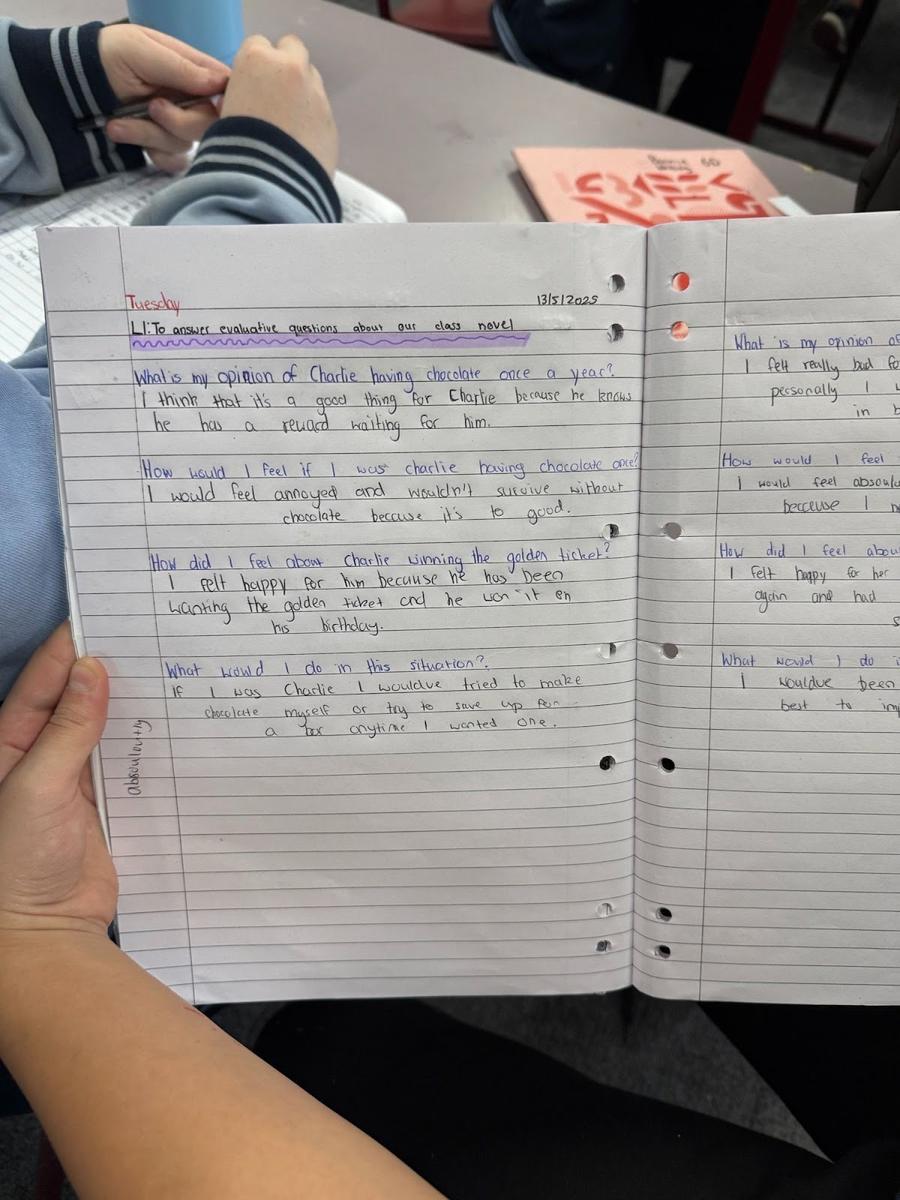 Tuesday
13/5/2025
LI: To answer evaluative questions about our class novel
What is my opinion of Charlie having chocolate once a year?
I think that it's a good thing for Charlie because he knows
he has a reward waiting for him.
How would I feel if I was charlie having chocolate once?
I would feel annoyed and wouldn't survive without
chocolate because it's to good.
How did I feel about Charlie winning the golden ticket?
I felt happy for him because he has been
wanting the golden ticket and he won it on
his birthday.
What would I do in this situation?
If I was Charlie I wouldve tried to make
chocolate myself or try to save up for
a bar anytime I wanted one.
absouloutly
What is my opinion of
I felt really bad fo
personally I
in b
How would I feel
I would feel absoulo
beceuse I n
How did I feel abou
I felt happy for her
again and had
s
What would I do i
I wouldve been
best to im
6D